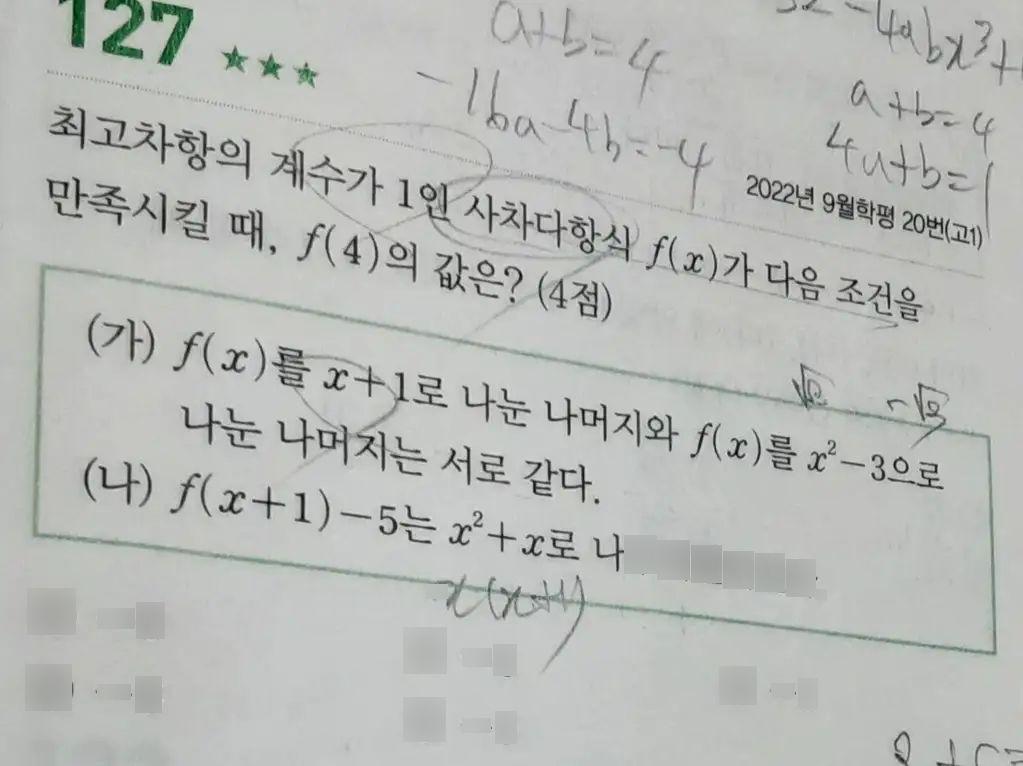 127 ★★★
a+b=4
-16a-4b=-4
-4abx³+
a+b=4
4a+b=1
2022년 9월학평 20번(고1)
최고차항의 계수가 1인 사차다항식 f(x)가 다음 조건을
만족시킬 때, f(4)의 값은? (4점)
(가) f(x)를 x+1로 나눈 나머지와 f(x)를 x²-3으로
나눈 나머지는 서로 같다.
(나) f(x+1)-5는 x²+x로 나
x(x+1)